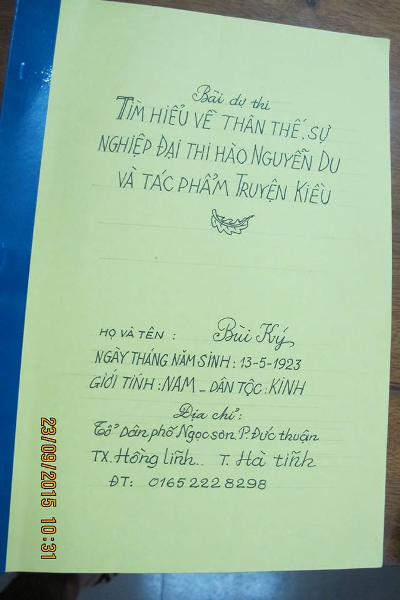 Bài dự thi
TÌM HIỂU VỀ THÂN THẾ, SỰ
NGHIỆP ĐẠI THI HÀO NGUYỄN DU
VÀ TÁC PHẨM TRUYỆN KIỀU
HỌ VÀ TÊN : Bùi Ký
NGÀY THÁNG NĂM SINH : 13-5-1923
GIỚI TÍNH : NAM _ DÂN TỘC : KINH
Địa chỉ :
Tổ Dân phố Ngọc sơn. P. Đức thuận
TX. Hồng lĩnh.. T. Hà tĩnh
ĐT: 0165 222 8298
23/09/2015 10:31